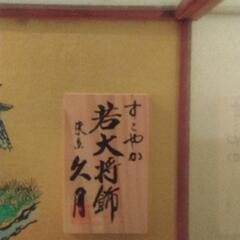 すこやか
若大将飾
東京
久月